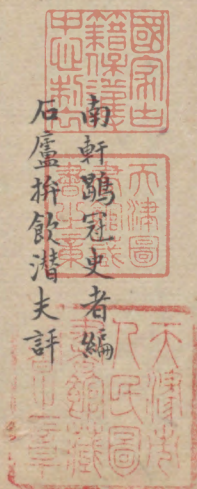 南軒鶡冠史者編
石廬拚飲潛夫評
天津圖書館藏書之章
天津市人民圖書館藏書之章